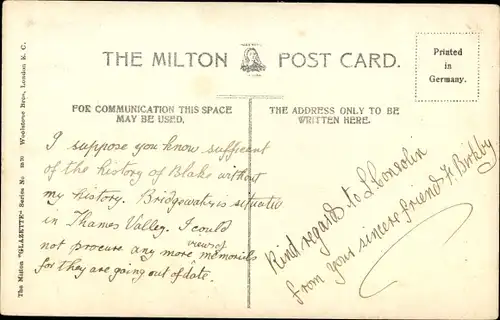 THE MILTON POST CARD.
Printed
in
Germany.
The Milton "GLAZETTE" Series No Woolstone Bros., London E. C.
FOR COMMUNICATION THIS SPACE
MAY BE USED.
THE ADDRESS ONLY TO BE
WRITTEN HERE.
I suppose you know sufficent
of the history of Blake without
my history. Bridgewater is situated
in Thames Valley. I could
not procure any more views of memorials
for they are going out of date.
Kind regards to
from your sincere friend H. Birkby